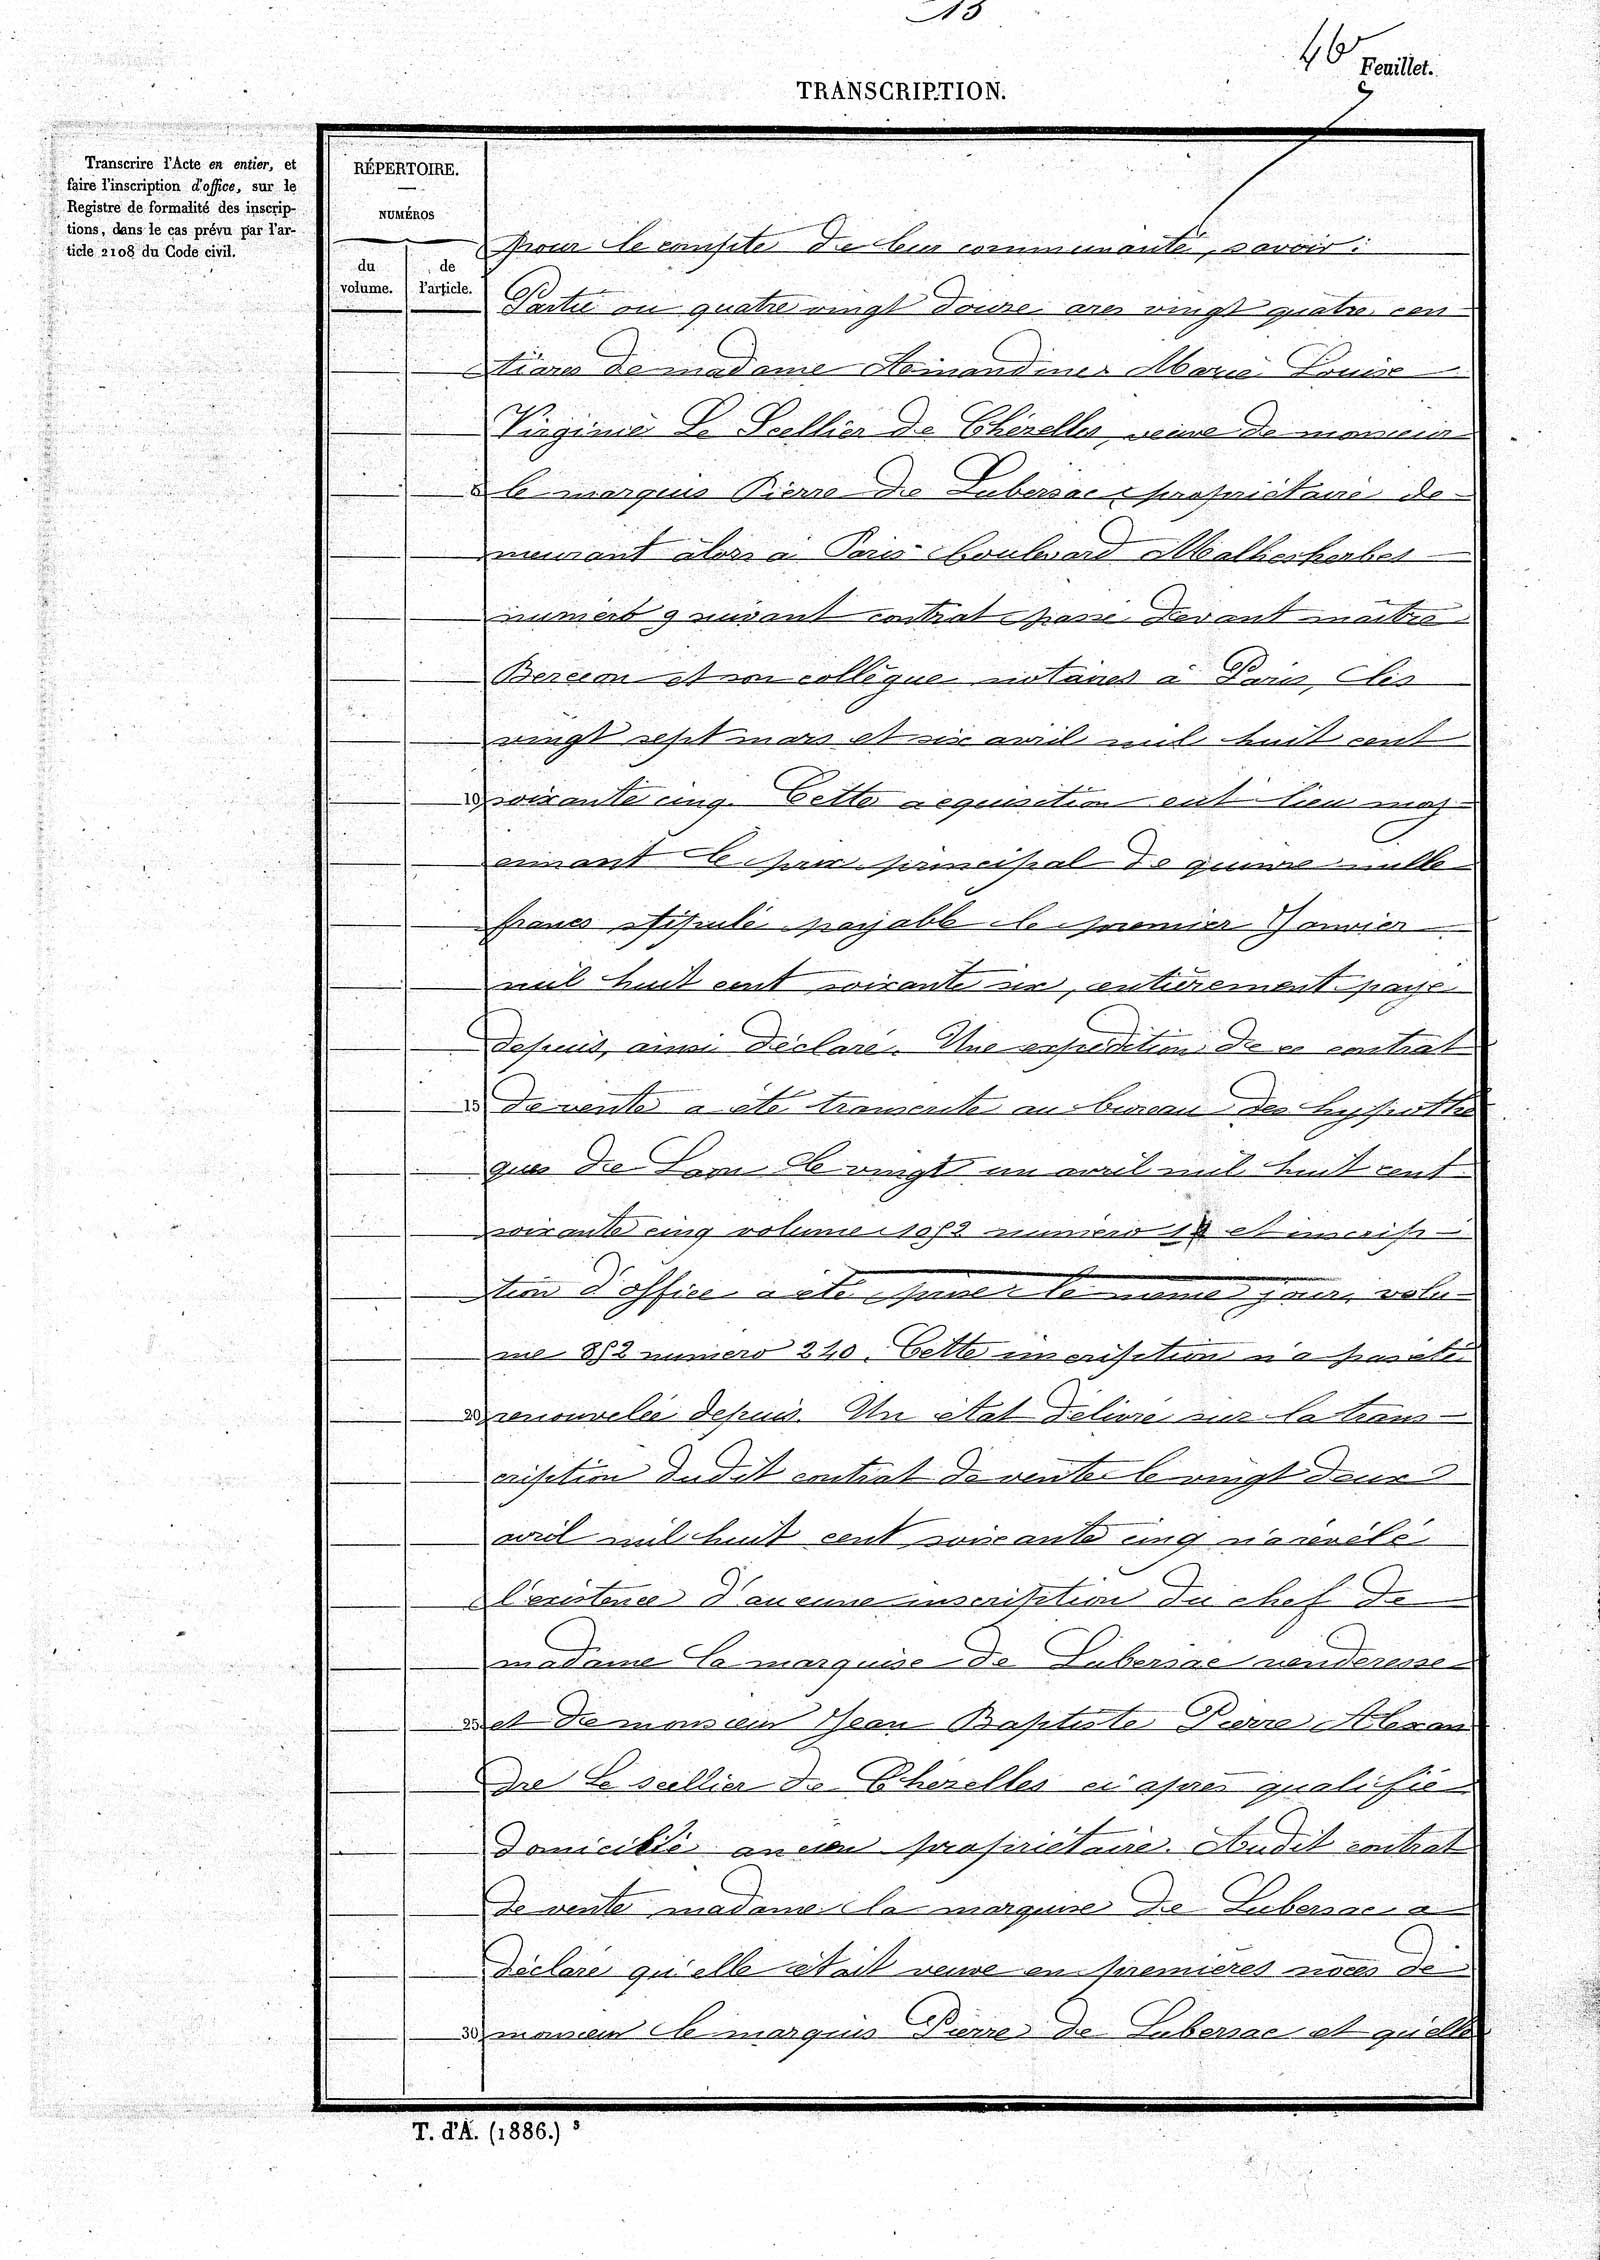 13
46
Feuillet.
TRANSCRIPTION.
Transcrire l'Acte en entier, et
faire l'inscription d'office, sur le
Registre de formalité des inscrip-
tions, dans le cas prévu par l'ar-
ticle 2108 du Code civil.
RÉPERTOIRE.
NUMÉROS
du
volume.
de
l'article.
pour le compte de leur communauté, savoir:
Partie ou quatre vingt douze ares vingt quatre cen
tiares de madame Armandine Marie Louise
Virginie Le Scellier de Chézelles, veuve de monsieur
5 le marquis Pierre de Lubersac, propriétaire de-
meurant alors à Paris boulevard Malhesherbes
numéro 9 suivant contrat passé devant maître
Berceon et son collègue notaires à Paris, les
vingt sept mars et six avril mil huit cent
10 soixante cinq. Cette acquisition eut lieu moy-
ennant le prix principal de quinze mille
francs stipulé payable le premier Janvier
mil huit cent soixante six, entièrement payé
depuis, ainsi déclaré. Une expédition de ce contrat
15 de vente a été transcrite au bureau des hypothè
ques de Laon le vingt un avril mil huit cent
soixante cinq volume 1052 numéro et inscrip-
tion d'office a été prise le même jour, volu-
me 852 numéro 240. Cette inscription n'a pas été
20 renouvelée depuis. Un état délivré sur la trans-
cription dudit contrat de vente le vingt deux
avril mil huit cent soixante cinq n'a révélé
l'existence d'aucune inscription du chef de
madame la marquise de Lubersac venderesse
25 et de monsieur Jean Baptiste Pierre Alexan
dre Le scellier de Chézelles ci après qualifié
domicilié ancien propriétaire. Audit contrat
de vente madame la marquise de Lubersac a
déclaré qu'elle était veuve en premières noces de
30 monsieur le marquis Pierre de Lubersac et qu'elle
T. d'A. (1886.) 3